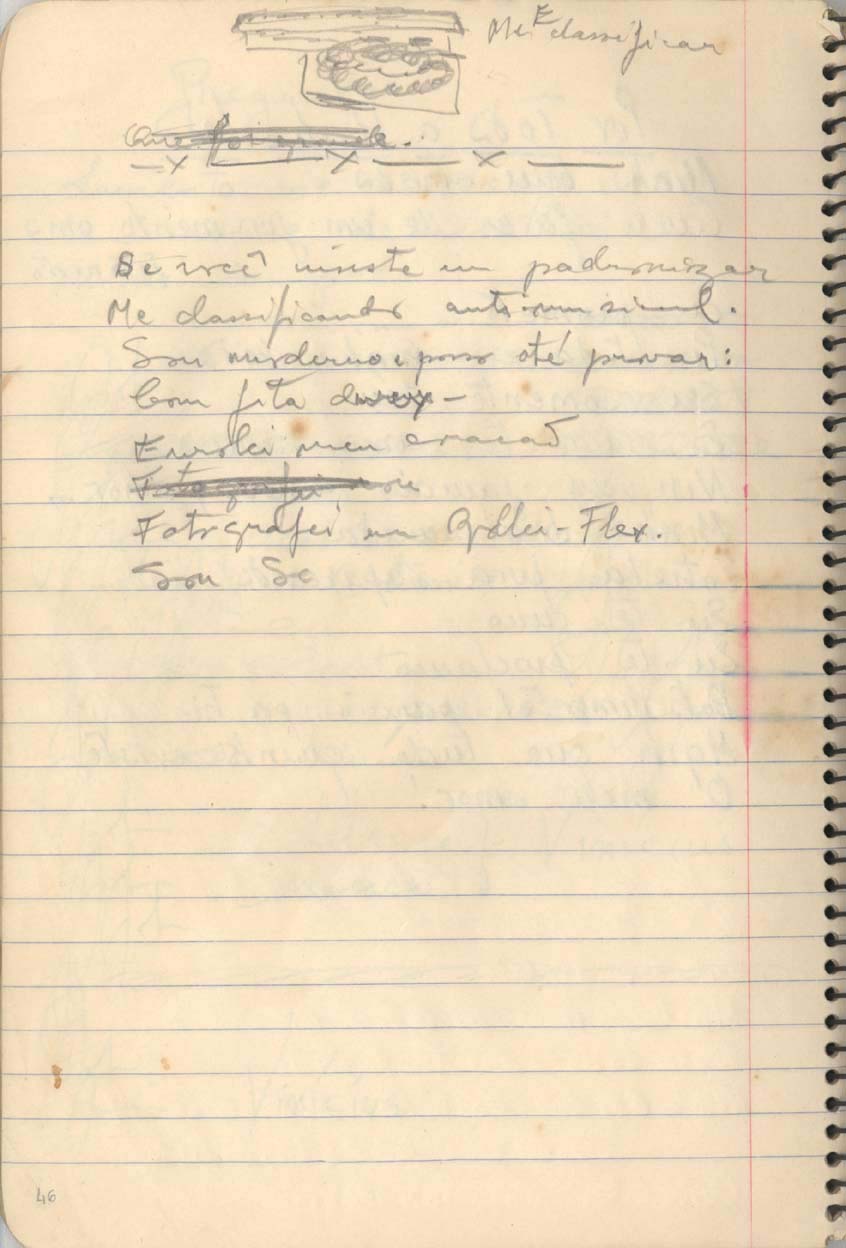 Me E classificar
Que foi grande.
Se você insiste em padronizar
Me classificando anti-musical.
Sou moderno e posso até provar:
Com fita durex –
Enrolei meu coração
Fotografei sou
Fotografei em Rolei-Flex.
Sou Se
46